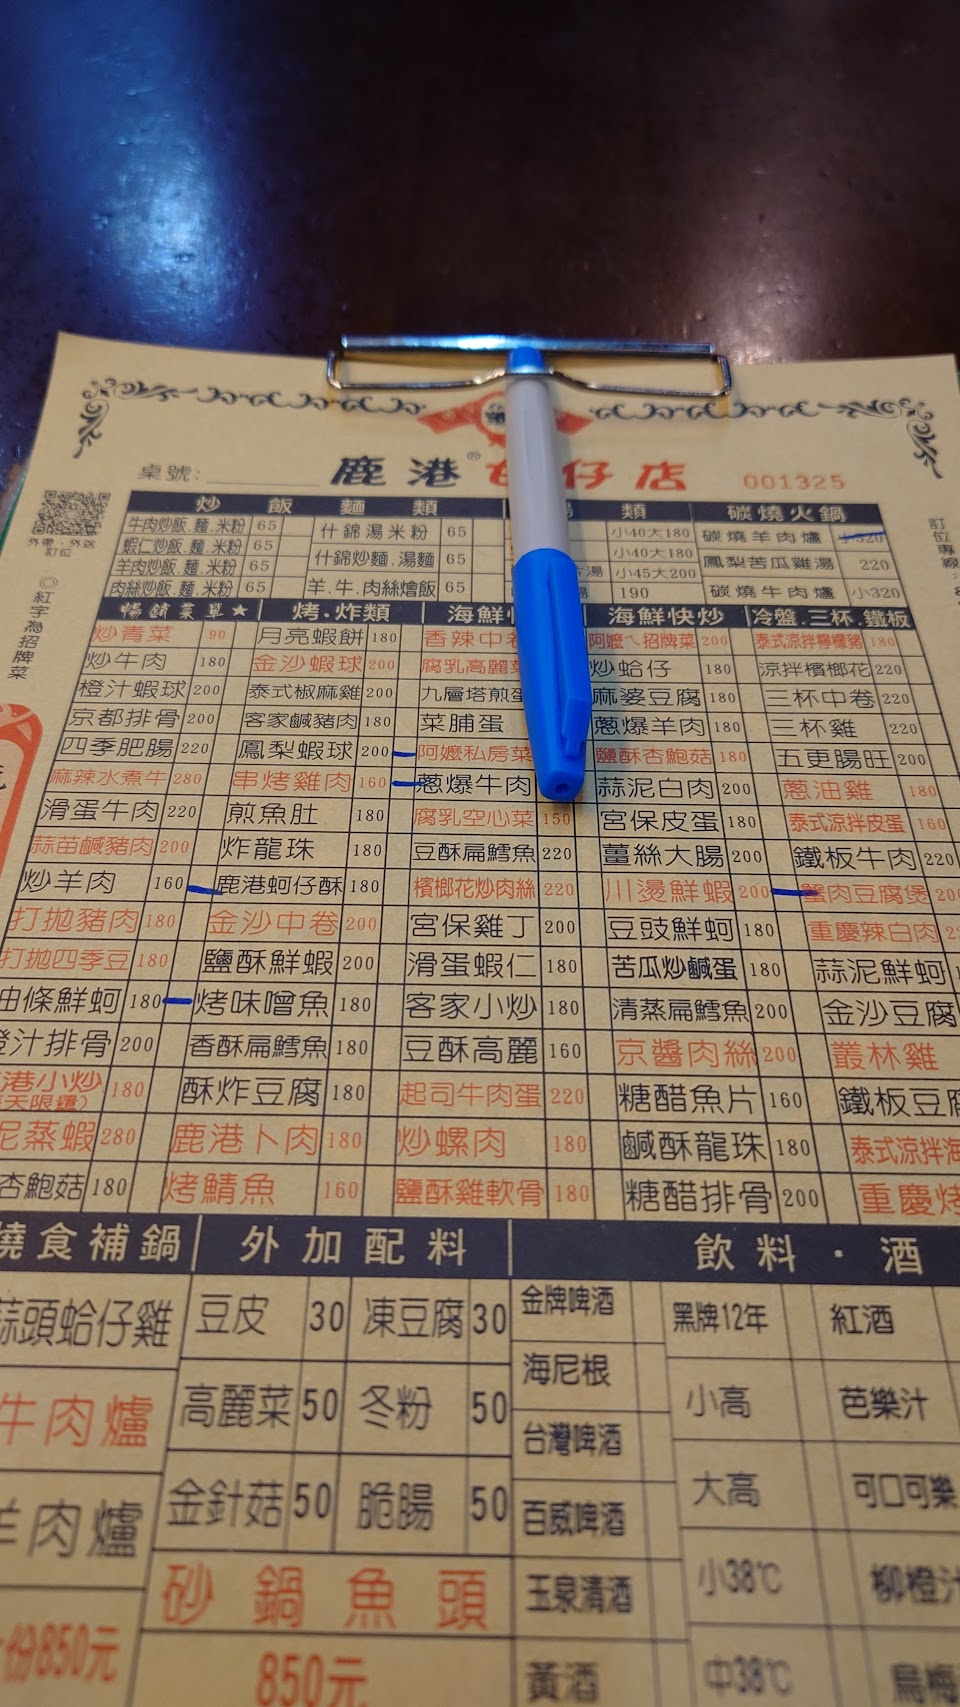 桌號:
鹿港® 仔店
001325
外帶、外送
訂位
◎紅字為招牌菜
訂位專線:
炒 飯 麵 類 湯 類 碳燒火鍋
牛肉炒飯.麵.米粉 65 什錦湯米粉 65 小40大180 碳燒羊肉爐 小320
蝦仁炒飯.麵.米粉 65 什錦炒麵.湯麵 65 小40大180 鳳梨苦瓜雞湯 220
羊肉炒飯.麵.米粉 65 湯 小45大200
肉絲炒飯.麵.米粉 65 羊.牛.肉絲燴飯 65 湯 190 碳燒牛肉爐 小320
暢銷菜單★ 烤.炸類 海鮮快 海鮮快炒 冷盤.三杯.鐵板
炒青菜 90 月亮蝦餅 180 香辣中卷 阿嬤ㄟ招牌菜 200 泰式涼拌檸檬豬 180
炒牛肉 180 金沙蝦球 200 腐乳高麗菜 炒蛤仔 180 涼拌檳榔花 220
橙汁蝦球 200 泰式椒麻雞 200 九層塔煎蛋 麻婆豆腐 180 三杯中卷 220
京都排骨 200 客家鹹豬肉 180 菜脯蛋 蔥爆羊肉 180 三杯雞 220
四季肥腸 220 鳳梨蝦球 200 阿嬤私房菜 鹽酥杏鮑菇 180 五更腸旺 200
麻辣水煮牛 280 串烤雞肉 160 蔥爆牛肉 蒜泥白肉 200 蔥油雞 180
滑蛋牛肉 220 煎魚肚 180 腐乳空心菜 150 宮保皮蛋 180 泰式涼拌皮蛋 160
蒜苗鹹豬肉 200 炸龍珠 180 豆酥扁鱈魚 220 薑絲大腸 200 鐵板牛肉 220
炒羊肉 160 鹿港蚵仔酥 180 檳榔花炒肉絲 220 川燙鮮蝦 200 蟹肉豆腐煲 200
打拋豬肉 180 金沙中卷 200 宮保雞丁 200 豆豉鮮蚵 180 重慶辣白肉
打拋四季豆 180 鹽酥鮮蝦 200 滑蛋蝦仁 180 苦瓜炒鹹蛋 180 蒜泥鮮蚵
油條鮮蚵 180 烤味噌魚 180 客家小炒 180 清蒸扁鱈魚 200 金沙豆腐
橙汁排骨 200 香酥扁鱈魚 180 豆酥高麗 160 京醬肉絲 200 叢林雞
港小炒 180 酥炸豆腐 180 起司牛肉蛋 220 糖醋魚片 160 鐵板豆腐
天限量)
泥蒸蝦 280 鹿港卜肉 180 炒螺肉 180 鹹酥龍珠 180 泰式涼拌海
杏鮑菇 180 烤鯖魚 160 鹽酥雞軟骨 180 糖醋排骨 200 重慶烤
燒食補鍋 外加配料 飲料.酒
蒜頭蛤仔雞 豆皮 30 凍豆腐 30 金牌啤酒 黑牌12年 紅酒
海尼根
牛肉爐 高麗菜 50 冬粉 50 台灣啤酒 小高 芭樂汁
羊肉爐 金針菇 50 脆腸 50 百威啤酒 大高 可口可樂
砂鍋魚頭 玉泉清酒 小38℃ 柳橙汁
份850元 850元 黃酒 中38℃ 烏梅